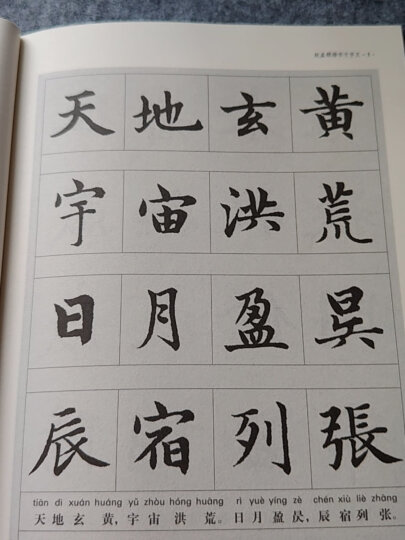 天地玄黄
宇宙洪荒
日月盈昃
辰宿列張
tiān dì xuán huáng yǔ zhòu hóng huāng rì yuè yíng zè chén xiù liè zhāng
天地玄黄,宇宙洪荒。日月盈昃,辰宿列张。